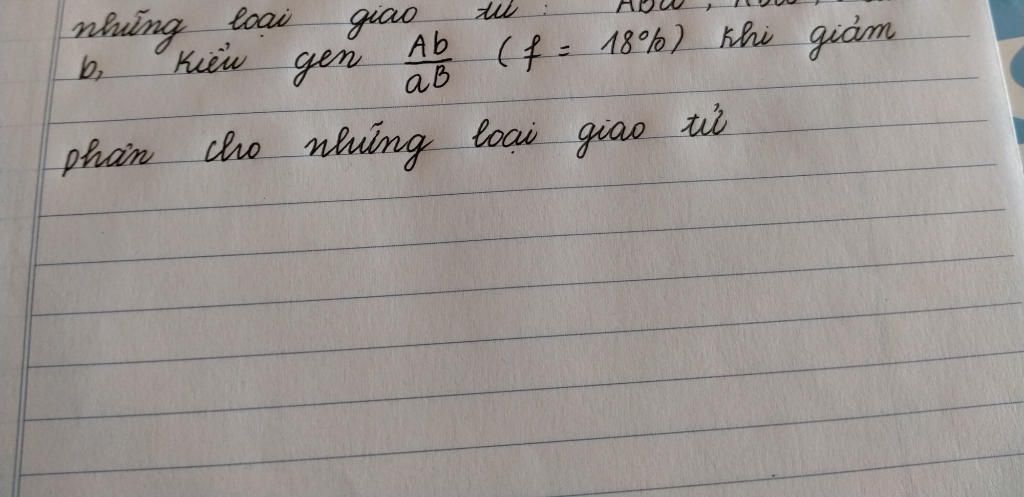 những loại giao tử :
b, Kiểu gen Ab/aB (f = 18%) khi giảm
phân cho những loại giao tử